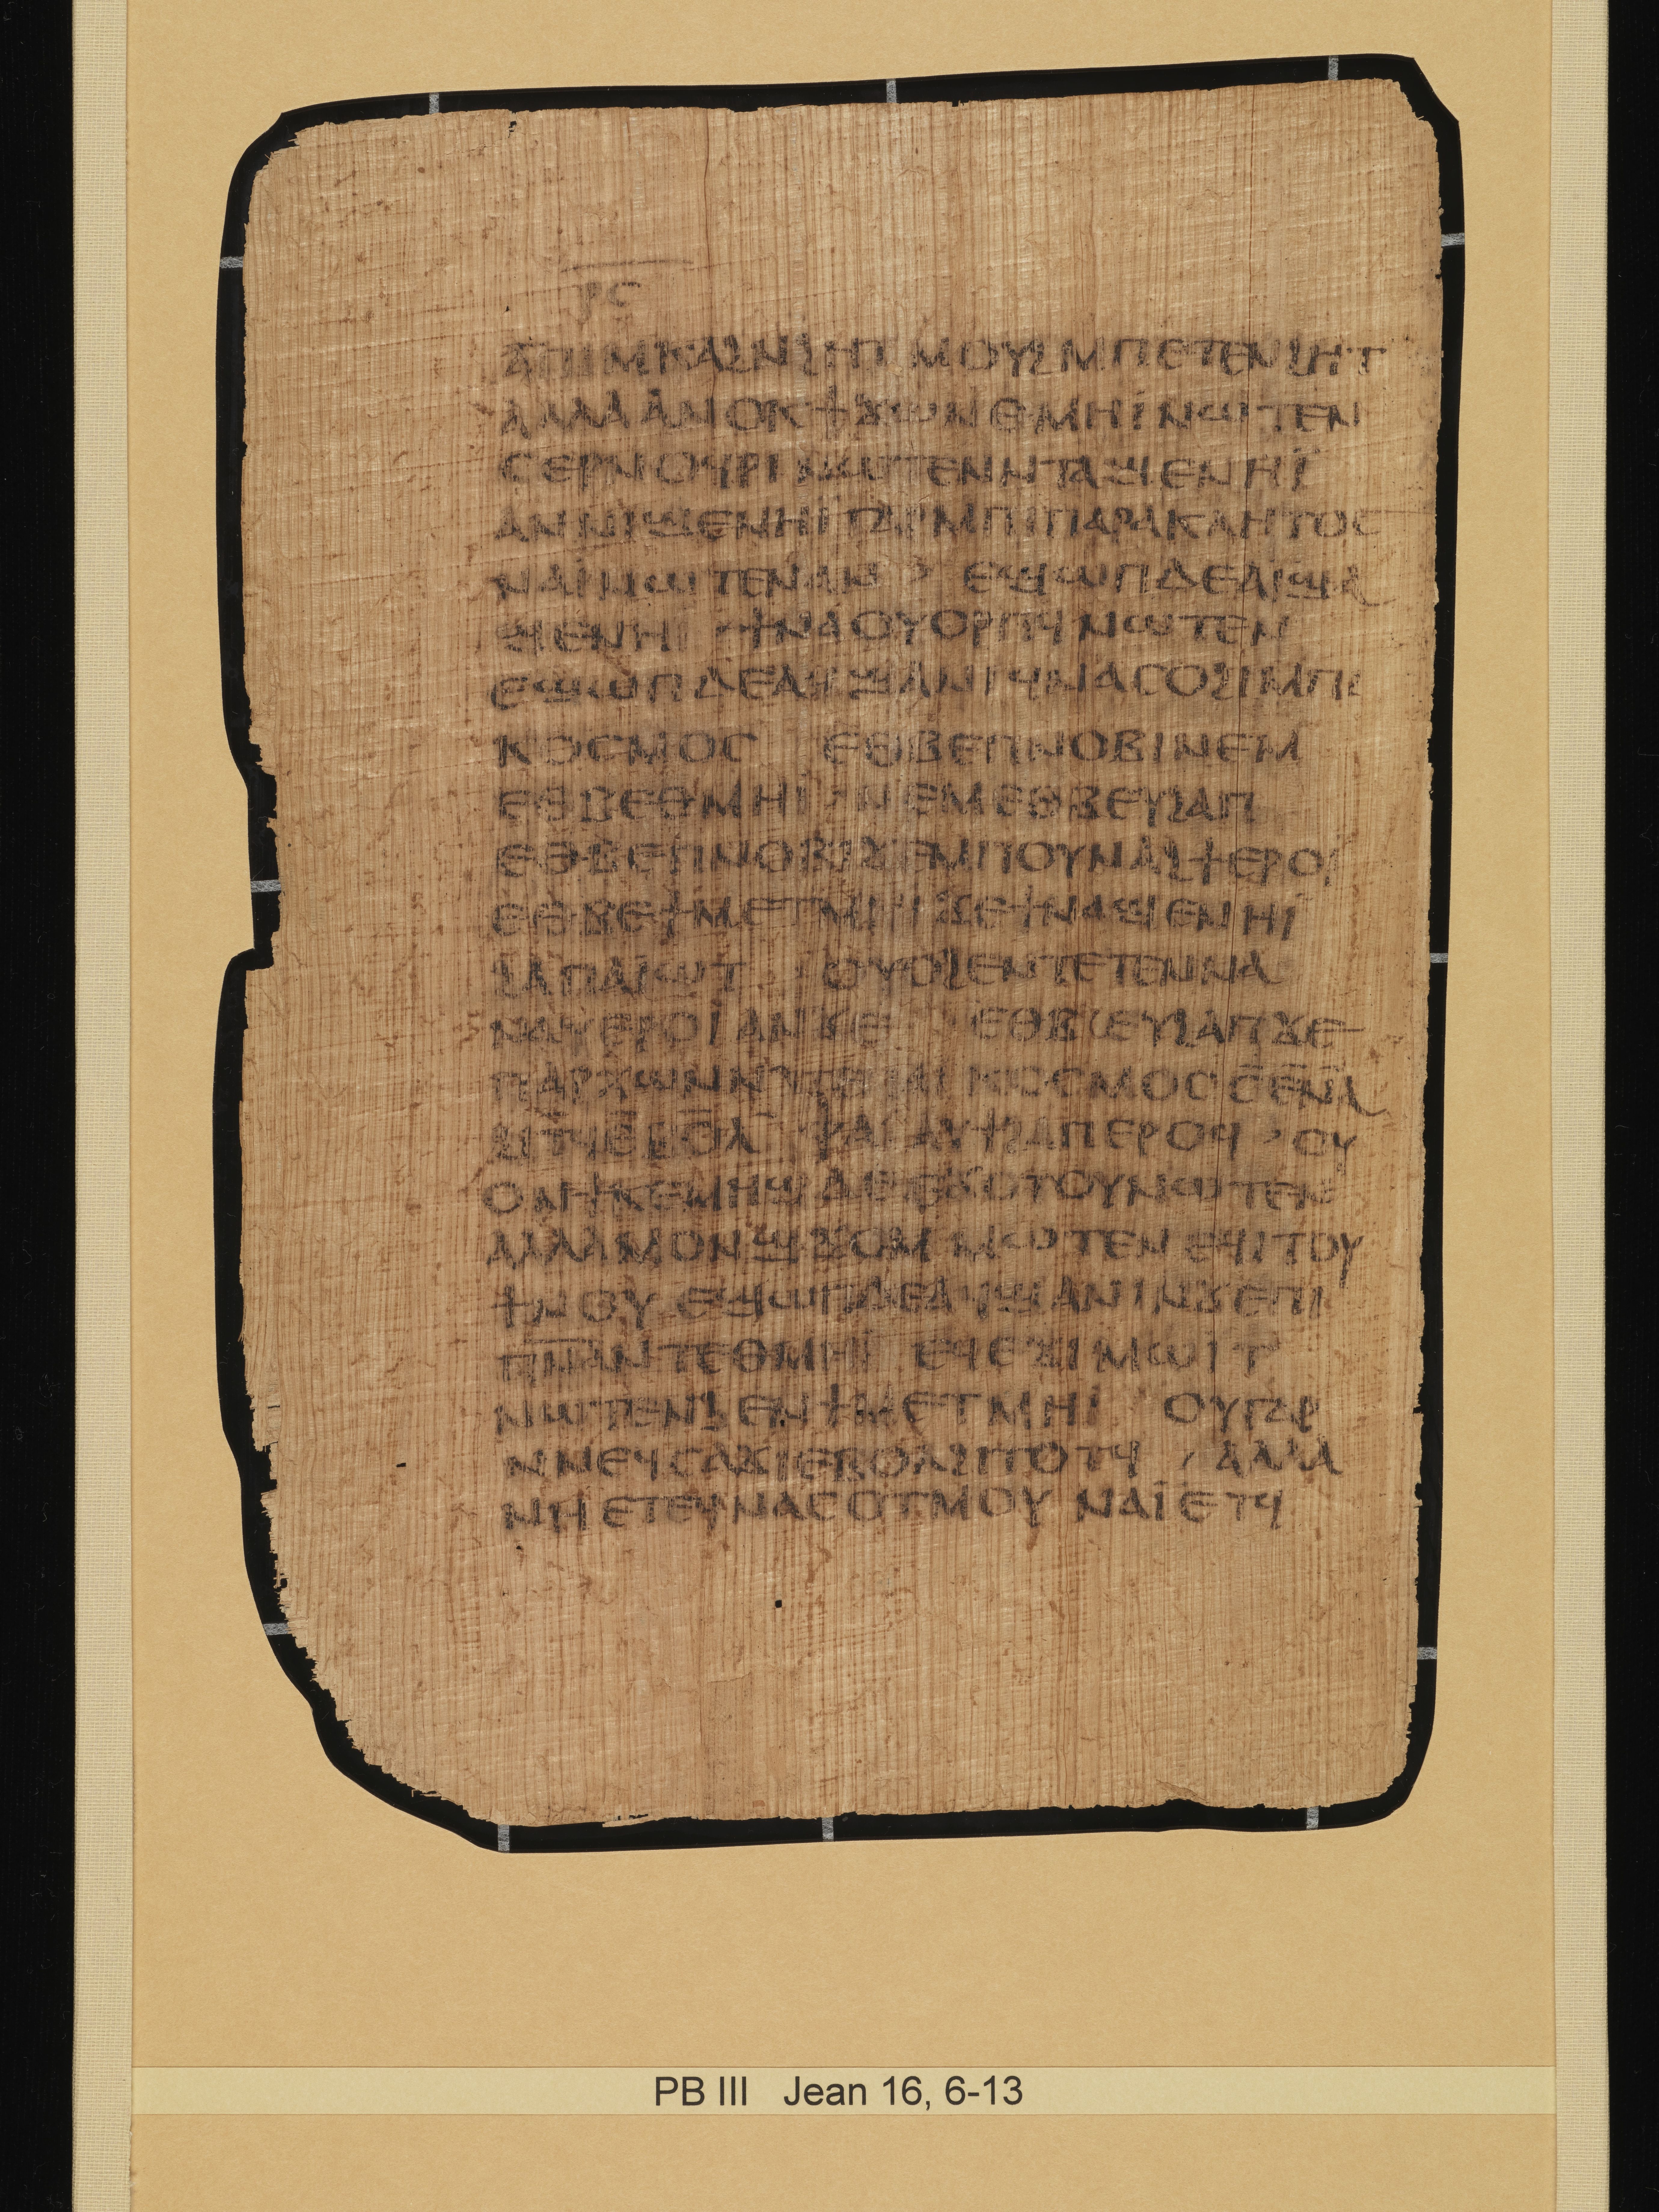 ⲣⲥ
ⲁⲡⲓⲙⲕⲁϩⲛϩⲏⲧ ⲙⲟⲩϩⲙⲡⲉⲧⲉⲛϩⲏⲧ
ⲁⲗⲗⲁⲁⲛⲟⲕϯϫⲱⲛⲑⲙⲏⲓⲛⲱⲧⲉⲛ
ⲥⲉⲣⲛⲟϥⲣⲓⲛⲱⲧⲉⲛⲛⲧⲁϣⲉⲛⲏⲓ̈
ⲁⲛⲛⲓϣⲉⲛⲏⲓⲅⲁⲣⲙⲡⲓⲡⲁⲣⲁⲕⲗⲏⲧⲟⲥ
ⲛⲁⲓ̈ⲛⲱⲧⲉⲛⲁⲛ ⲉϣⲱⲡⲇⲉⲁⲓϣⲁ
ϣⲉⲛⲏⲓ ϯⲛⲁⲟⲩⲟⲣⲡϥⲛⲱⲧⲉⲛ
ⲉϣⲱⲡⲇⲉⲁϥϣⲁⲛⲓϥⲛⲁⲥⲟϩⲓⲙⲡⲓ
ⲕⲟⲥⲙⲟⲥ ⲉⲑⲃⲉⲡⲛⲟⲃⲓⲛⲉⲙ
ⲉⲑⲃⲉⲑⲙⲏⲓ ⲛⲉⲙⲉⲑⲃⲉⲩϩⲁⲡ
ⲉⲑⲃⲉⲡⲛⲟⲃⲓϫⲉⲙⲡⲟⲩⲛⲁϩϯⲉⲣⲟⲓ
ⲉⲑⲃⲉϯⲙⲉⲧⲙⲏⲓϫⲉϯⲛⲁϣⲉⲛⲏⲓ
ϩⲁⲡⲁⲓⲱⲧ ⲟⲩⲟϩⲉⲛⲧⲉⲧⲉⲛⲛⲁ
ⲛⲁⲩⲉⲣⲟⲓⲁⲛϫⲉ ⲉⲑⲃⲉⲩϩⲁⲡϫⲉ
ⲡⲁⲣⲭⲱⲛⲛⲧⲉⲡⲁⲓⲕⲟⲥⲙⲟⲥⲥⲉⲛⲁ
ϩⲓⲧϥⲉⲃⲟⲗ ⲁⲩϯϩⲁⲡⲉⲣⲟϥ ⲟⲩ
ⲟⲛϯⲕⲉⲙⲏϣⲇⲉⲉϫⲟⲧⲟⲩⲛⲱⲧⲉⲛ
ⲁⲗⲗⲁⲙⲟⲛϣϫⲟⲙ ⲙⲱⲧⲉⲛ ⲉϥⲓⲧⲟⲩ
ϯⲛⲟⲩ ⲉϣⲱⲡⲇⲉⲁϥϣⲁⲛⲓⲛϫⲉⲡⲓ
ⲡⲛ̅ⲁ̅ⲛⲧⲉⲑⲙⲏⲓ ⲉϥⲉϫⲓⲙⲱⲓⲧ
ⲛⲱⲧⲉⲛϧⲉⲛϯⲙⲉⲧⲙⲏⲓ ⲟⲩⲅⲁⲣ
ⲛⲛⲉϥⲥⲁϫⲓⲉⲃⲟⲗϩⲓⲧⲟⲧϥ ⲁⲗⲗⲁ
ⲛⲏⲉⲧⲉϥⲛⲁⲥⲟⲧⲙⲟⲩ ⲛⲁⲓ̈ⲉⲧϥ
PB III Jean 16, 6-13